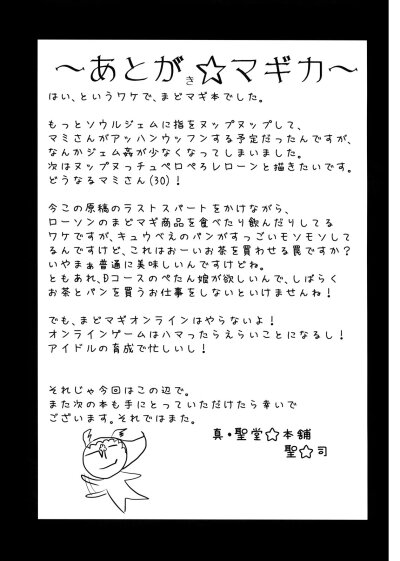 ～あとがき☆マギカ～
はい、というワケで、まどマギ本でした。
もっとソウルジェムに指をヌップヌップして、
マミさんがアッハンウッフンする予定だったんですが、
なんかジェム姦が少なくなってしまいました。
次はヌップヌッチュペロペろレローンと描きたいです。
どうなるマミさん(30)！
今この原稿のラストスパートをかけながら、
ローソンのまどマギ商品を食べたり飲んだりしてる
ワケですが、キュウべえのパンがすっごいモソモソして
るんですけど、これはおーいお茶を買わせる罠ですか？
いやまぁ普通に美味しいんですけどね。
ともあれ、Dコースのぺたん娘が欲しいんで、しばらく
お茶とパンを買うお仕事をしないといけませんね！
でも、まどマギオンラインはやらないよ！
オンラインゲームはハマったらえらいことになるし！
アイドルの育成で忙しいし！
それじゃ今回はこの辺で。
また次の本も手にとっていただけたら幸いで
ございます。それではまた。
真・聖堂☆本舗
聖☆司